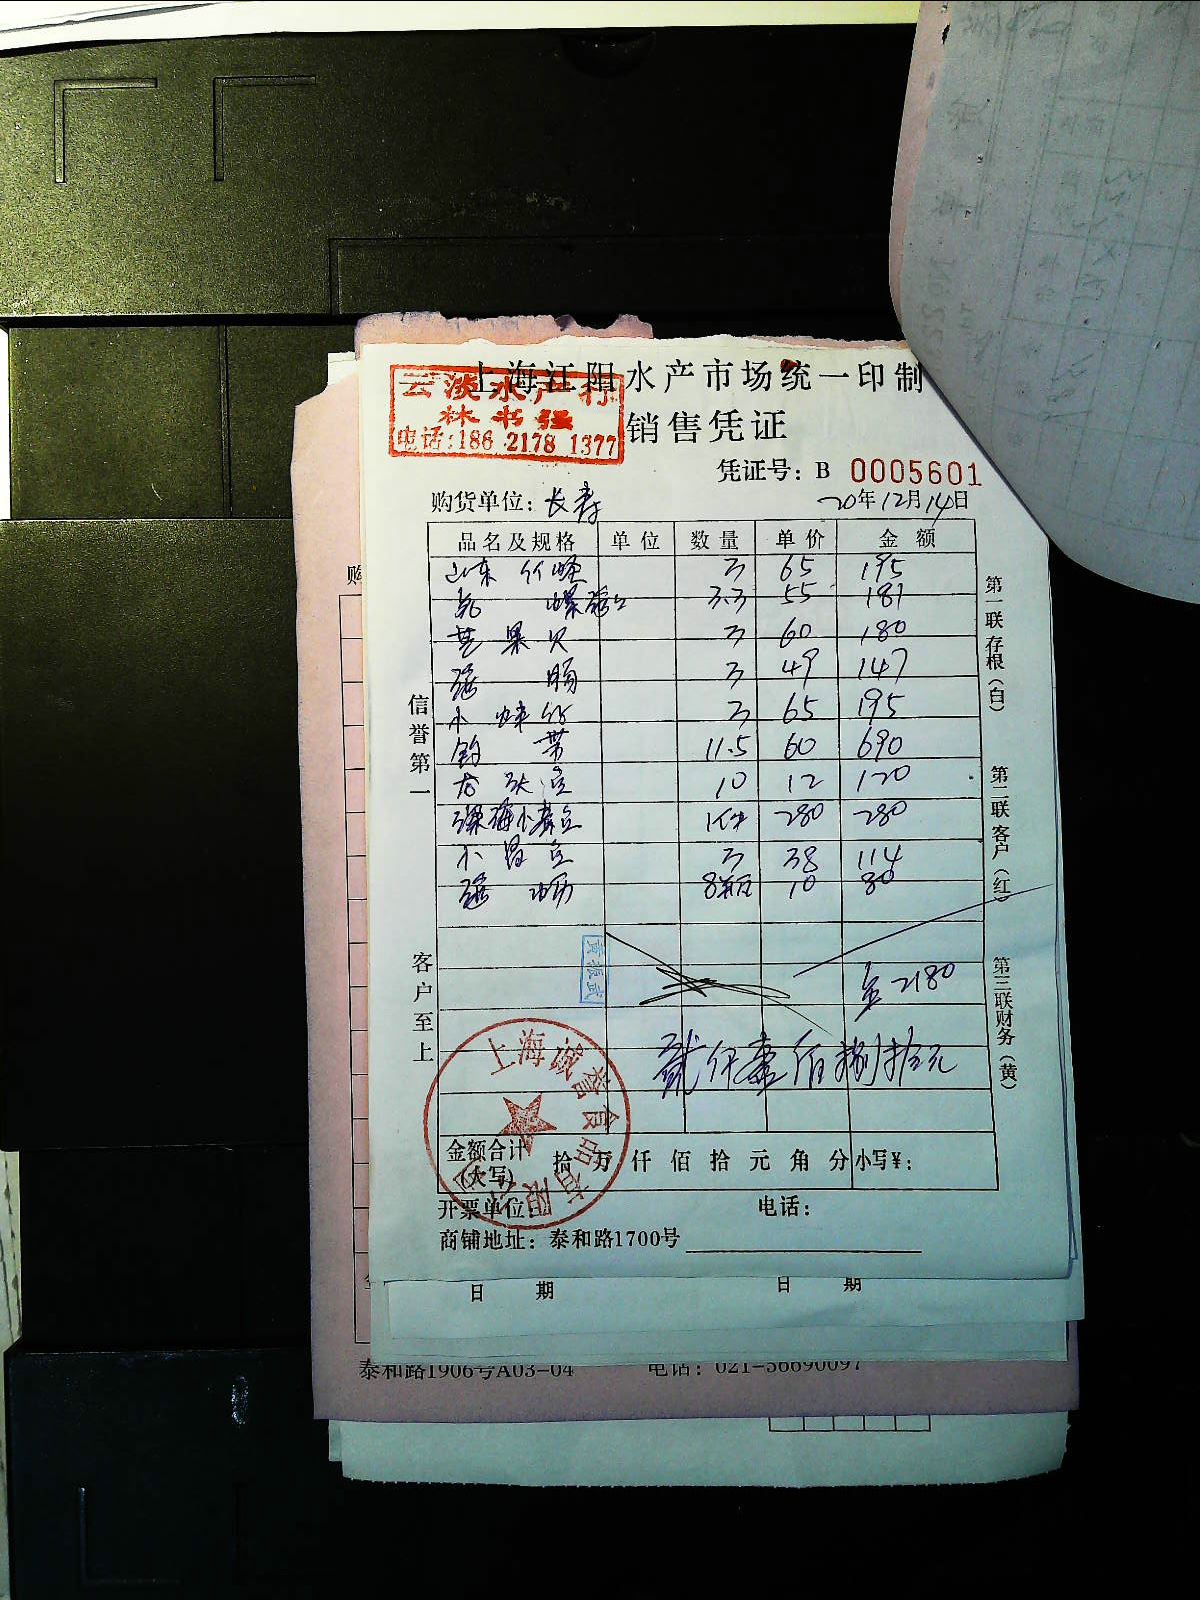 上海江阳水产市场统一印制
云淡水产行
林书强
电话:186 2178 1377
销售凭证
凭证号: B 0005601
购货单位: 长寿
20年12月14日
品名及规格 单位 数量 单价 金额
山东 竹蛏 3 65 195
3.3 55 181
芒果贝 3 60 180
海肠 3 49 147
小 3 65 195
11.5 60 690
龙头鱼 10 12 120
深海小黄鱼 1件 280 280
小 鱼 3 38 114
海蛎 8瓶 10 80
2180
贰仟壹佰捌拾元
信誉第一
客户至上
第一联存根(白)
第二联客户(红)
第三联财务(黄)
上海诚誉食品有限公司
金额合计
(大写)
拾 万 仟 佰 拾 元 角 分 小写¥:
开票单位:
电话:
商铺地址: 泰和路1700号
日 期
日 期
泰和路1906号A03-04
电话: 021-56690097
购